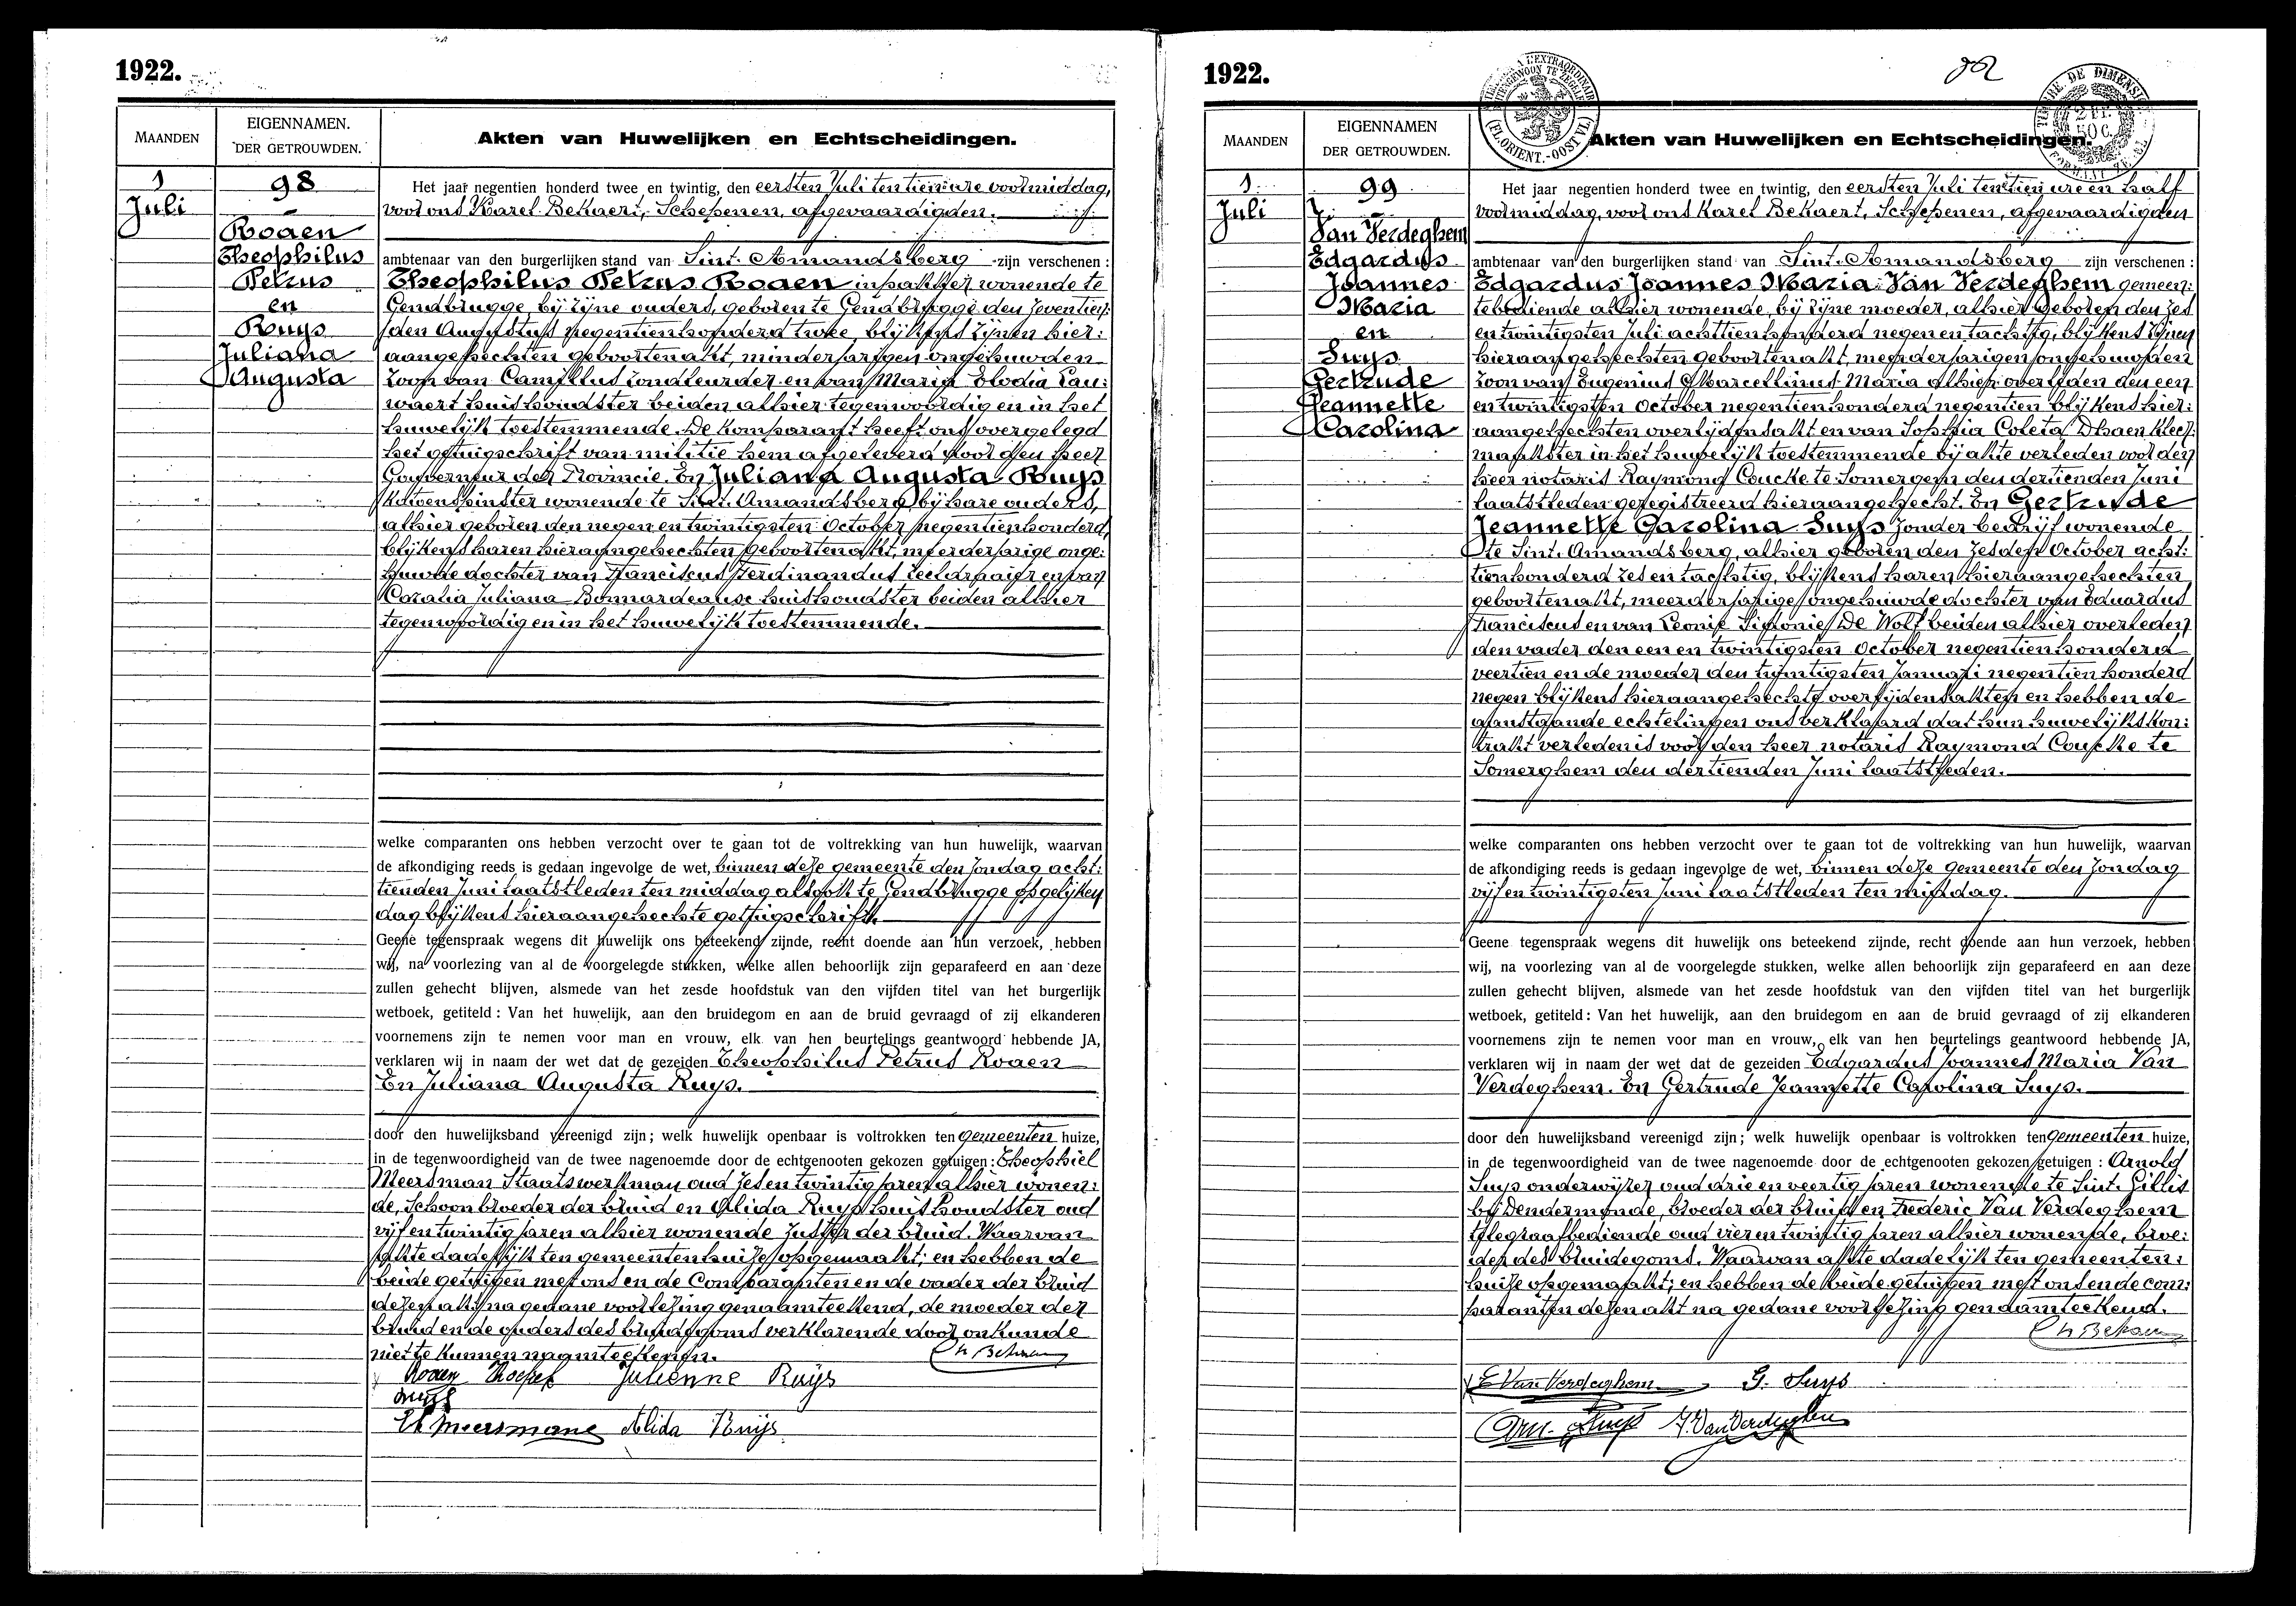 1922.
MAANDEN
EIGENNAMEN.
DER GETROUWDEN.
Akten van Huwelijken en Echtscheidingen.
1
Juli
98
Rogen
Theophilus
Petrus
en
Ruys
Juliana
Augusta
Het jaar negentien honderd twee en twintig, den eersten Juli ten tien ure voormiddag,
voor ons Karel Bekaert, Schepenen, afgevaardigden.
ambtenaar van den burgerlijken stand van Sint-Amandsberg zijn verschenen :
Theophilus Petrus Rogen inpakker wonende te
Gendbrugge, bij zijne ouders, geboren te Gendbrugge den zeventien:
den Augustus negentienhonderd twee, blijkens zijnen hier:
aangehechten geboortenakt, minderjarigen ongehuwden
zoon van Camillus zondleurder en van Maria Elodia Lau:
waert huishoudster beiden alhier tegenwoordig en in het
huwelijk toestemmende. De komparant heeft ons overgelegd
het getuigschrift van militie hem afgeleverd door den heer
Gouverneur der Provincie. En Juliana Augusta Ruys
Katoenspinster wonende te Sint-Amandsberg bij hare ouders,
alhier geboren den negen en twintigsten October negentienhonderd,
blijkens haren hieraangehechten geboortenakt, meerderjarige onge:
huwde dochter van Franciscus Ferdinandus zeeldraaier en van
Coralia Juliana Bonnardeaux huishoudster beiden alhier
tegenwoordig en in het huwelijk toestemmende.
welke comparanten ons hebben verzocht over te gaan tot de voltrekking van hun huwelijk, waarvan
de afkondiging reeds is gedaan ingevolge de wet, binnen deze gemeente den zondag acht:
tienden Juni laatstleden ten middag alsook te Gendbrugge op gelijken
dag blijkens hieraangehechte getuigschrift.
Geene tegenspraak wegens dit huwelijk ons beteekend zijnde, recht doende aan hun verzoek, hebben
wij, na voorlezing van al de voorgelegde stukken, welke allen behoorlijk zijn geparafeerd en aan deze
zullen gehecht blijven, alsmede van het zesde hoofdstuk van den vijfden titel van het burgerlijk
wetboek, getiteld : Van het huwelijk, aan den bruidegom en aan de bruid gevraagd of zij elkanderen
voornemens zijn te nemen voor man en vrouw, elk van hen beurtelings geantwoord hebbende JA,
verklaren wij in naam der wet dat de gezeiden Theophilus Petrus Rogen
En Juliana Augusta Ruys.
door den huwelijksband vereenigd zijn ; welk huwelijk openbaar is voltrokken ten gemeenten huize,
in de tegenwoordigheid van de twee nagenoemde door de echtgenooten gekozen getuigen : Theophiel
Meersman Staatswerkman oud zes en twintig jaren alhier wonen:
de, schoonbroeder der bruid en Alida Ruys huishoudster oud
vijf en twintig jaren alhier wonende zuster der bruid. Waarvan
akte dadelijk ten gemeentenhuize opgemaakt; en hebben de
beide getuigen met ons en de Comparanten en de vader der bruid
dezen akt na gedane voorlezing genaamteekend, de moeder der
bruid en de ouders des bruidegoms verklarende door onkunde
niet te kunnen naamteekenen.
Ch Bekaert
Rogen Theofiel Julienne Ruijs
Ruys
Th Meersmane Alida Ruijs
1922.
MAANDEN
EIGENNAMEN
DER GETROUWDEN.
Akten van Huwelijken en Echtscheidingen.
(FL. ORIENT.-OOST VL.)
TIMBRE DE DIMENSION
2 FR.
50 C.
1
Juli
99
Van Verdeghem
Edgardus
Joannes
Maria
en
Suys
Gertrude
Jeannette
Carolina
Het jaar negentien honderd twee en twintig, den eersten Juli ten tien ure en half
voormiddag, voor ons Karel Bekaert, Schepenen, afgevaardigden
ambtenaar van den burgerlijken stand van Sint-Amandsberg zijn verschenen :
Edgardus Joannes Maria Van Verdeghem gemeen:
tebediende alhier wonende, bij zijne moeder, alhier geboren den zes
en twintigsten Juli achttienhonderd negen en tachtig, blijkens zijnen
hieraangehechten geboortenakt, meerderjarigen ongehuwden
zoon van Eugenius Marcellinus Maria alhier overleden den een
en twintigsten October negentienhonderd negentien blijkens hier:
aangehechten overlijdensakt en van Sophia Coleta Dhaen kleer:
maakster in het huwelijk toestemmende bij akte verleden voor den
heer notaris Raymond Coucke te Somergem den dertienden Juni
laatstleden geregistreerd hieraangehecht. En Gertrude
Jeannette Carolina Suys zonder bedrijf wonende
te Sint-Amandsberg, alhier geboren den zesden October acht:
tienhonderd zes en tachtig, blijkens haren hieraangehechten
geboortenakt, meerderjarige ongehuwde dochter van Eduardus
Franciscus en van Leonie Sidonie De Wolf beiden alhier overleden
den vader den een en twintigsten October negentienhonderd
veertien en de moeder den twintigsten Januari negentienhonderd
negen blijkens hieraangehechte overlijdensakten en hebben de
aanstaande echtelingen ons verklaard dat hun huwelijkskon:
trakt verleden is voor den heer notaris Raymond Coucke te
Somerghem den dertienden Juni laatstleden.
welke comparanten ons hebben verzocht over te gaan tot de voltrekking van hun huwelijk, waarvan
de afkondiging reeds is gedaan ingevolge de wet, binnen deze gemeente den zondag
vijf en twintigsten Juni laatstleden ten middag.
Geene tegenspraak wegens dit huwelijk ons beteekend zijnde, recht doende aan hun verzoek, hebben
wij, na voorlezing van al de voorgelegde stukken, welke allen behoorlijk zijn geparafeerd en aan deze
zullen gehecht blijven, alsmede van het zesde hoofdstuk van den vijfden titel van het burgerlijk
wetboek, getiteld : Van het huwelijk, aan den bruidegom en aan de bruid gevraagd of zij elkanderen
voornemens zijn te nemen voor man en vrouw, elk van hen beurtelings geantwoord hebbende JA,
verklaren wij in naam der wet dat de gezeiden Edgardus Joannes Maria Van
Verdeghem. En Gertrude Jeannette Carolina Suys.
door den huwelijksband vereenigd zijn ; welk huwelijk openbaar is voltrokken ten gemeenten huize,
in de tegenwoordigheid van de twee nagenoemde door de echtgenooten gekozen getuigen : Arnold
Suys onderwijzer oud drie en veertig jaren wonende te Sint-Gillis
bij Dendermonde, broeder der bruid en Frederic Van Verdeghem
telegraafbediende oud vier en twintig jaren alhier wonende, broe:
der des bruidegoms. Waarvan akte dadelijk ten gemeenten:
huize opgemaakt; en hebben de beide getuigen met ons en de com:
paranten dezen akt na gedane voorlezing genaamteekend.
Ch Bekaert
E Van Verdeghem G. Suys
Arn. Suys F. Van Verdeghem